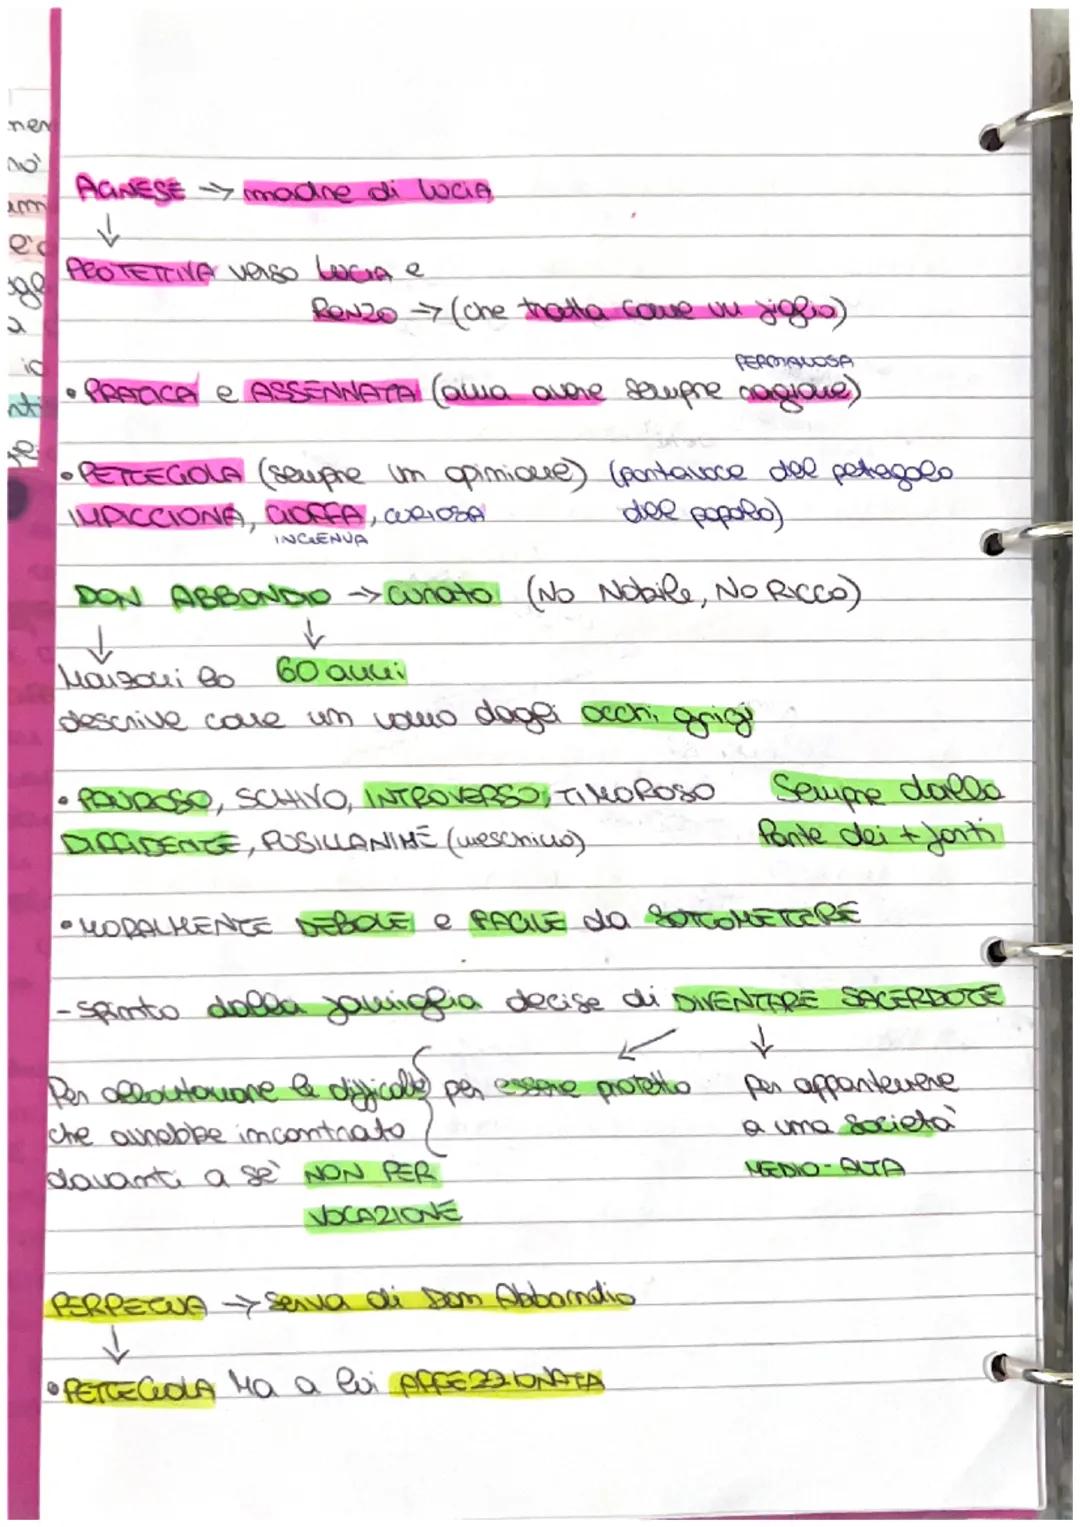 AGNESE → madre di LUCIA
↓
PROTETTIVA verso LUCIA e
RENZO → (che tratta come un figlio)
PERMALOSA
• PRATICA e ASSENNATA (ama avere sempre ragione)
• PETTEGOLA (sempre un opinione) (portavoce del petegolo
IMPICCIONA, GIOFFA, CURIOSA del popolo)
INGENUA
DON ABBONDIO → curato (No Nobile, No RICCO)
↓ ↓
Manzoni lo 60 anni
descrive come un uomo dagli occhi grigi
• PAUROSO, SCHIVO, INTROVERSO, TIMOROSO Sempre dalla
DIFFIDENTE, PUSILLANIME (meschino) Parte dei + forti
• MORALMENTE DEBOLE e FACILE da SOTTOMETTERE
- spinto dalla famiglia decise di DIVENTARE SACERDOTE
↙ ↓
Per allontanare le difficoltà per essere protetto per appartenere
che avrebbe incontrato a una società
davanti a sé NON PER MEDIO-ALTA
VOCAZIONE
PERPETUA → Serva di Don Abbondio
↓
• PETTEGOLA Ma a lui AFFEZZIONATA